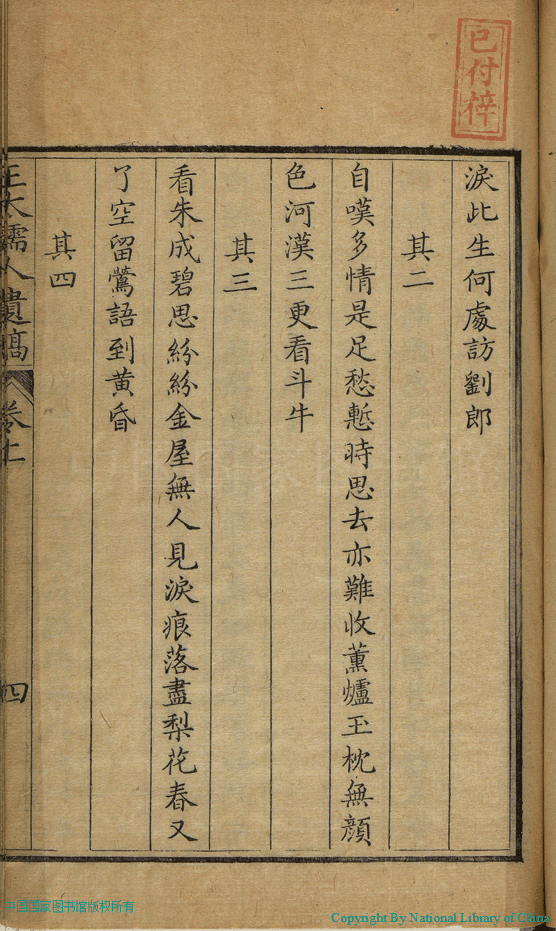 已付梓
淚此生何處訪劉郎
其二
自嘆多情是足愁暫時思去亦難收薰爐玉枕無顔
色河漢三更看斗牛
其三
看朱成碧思紛紛金屋無人見淚痕落盡梨花春又
了空留鶯語到黄昏
其四
王大孺人遺稿 卷上 四
中国国家图书馆版权所有
Copyright By National Library of China